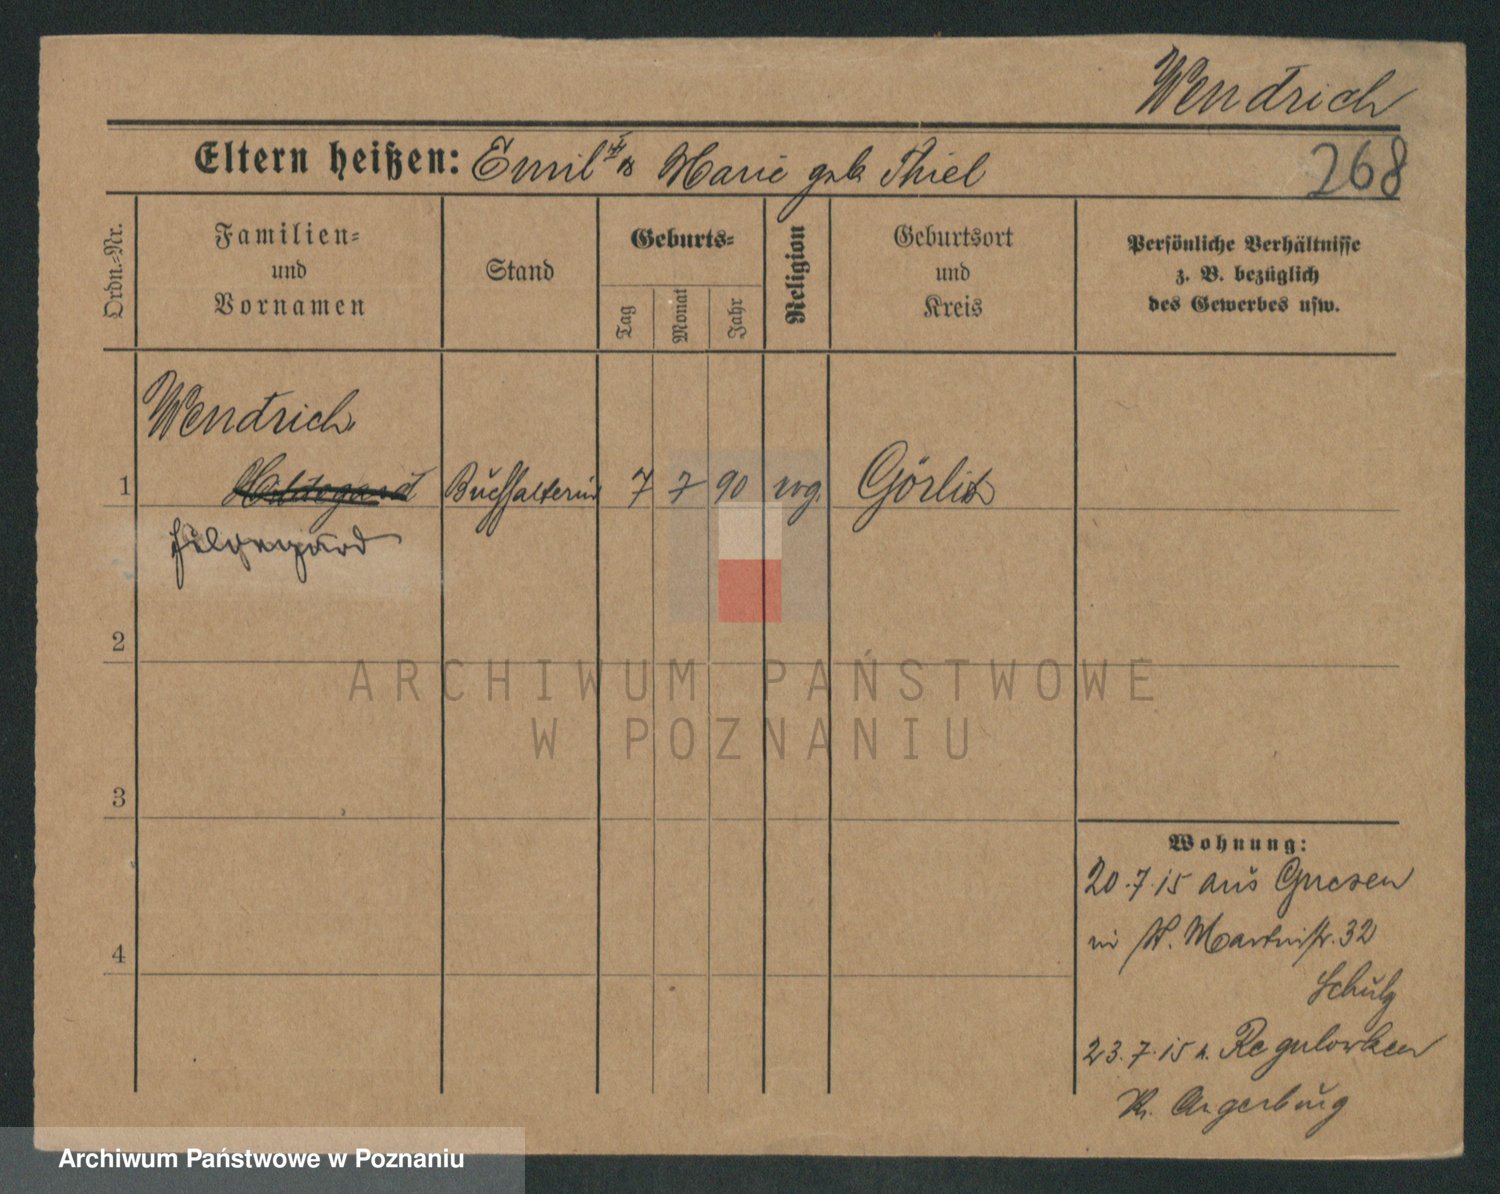 Wendrich
Eltern heißen: Emil u Marie geb Thiel
268
Ordn.-Nr.
Familien-
und
Vornamen
Stand
Geburts-
Tag
Monat
Jahr
Religion
Geburtsort
und
Kreis
Persönliche Verhältnisse
z. B. bezüglich
des Gewerbes usw.
Wendrich
1 Hildegard Buchhalterin 7 7 90 evg. Görlitz
Hildegard
2
3
4
Wohnung:
20.7.15 aus Gnesen
in W. Martinstr. 32
Schulz
23.7.15 n. Regulowken
Kr. Angerburg
ARCHIWUM PAŃSTWOWE
W POZNANIU
Archiwum Państwowe w Poznaniu